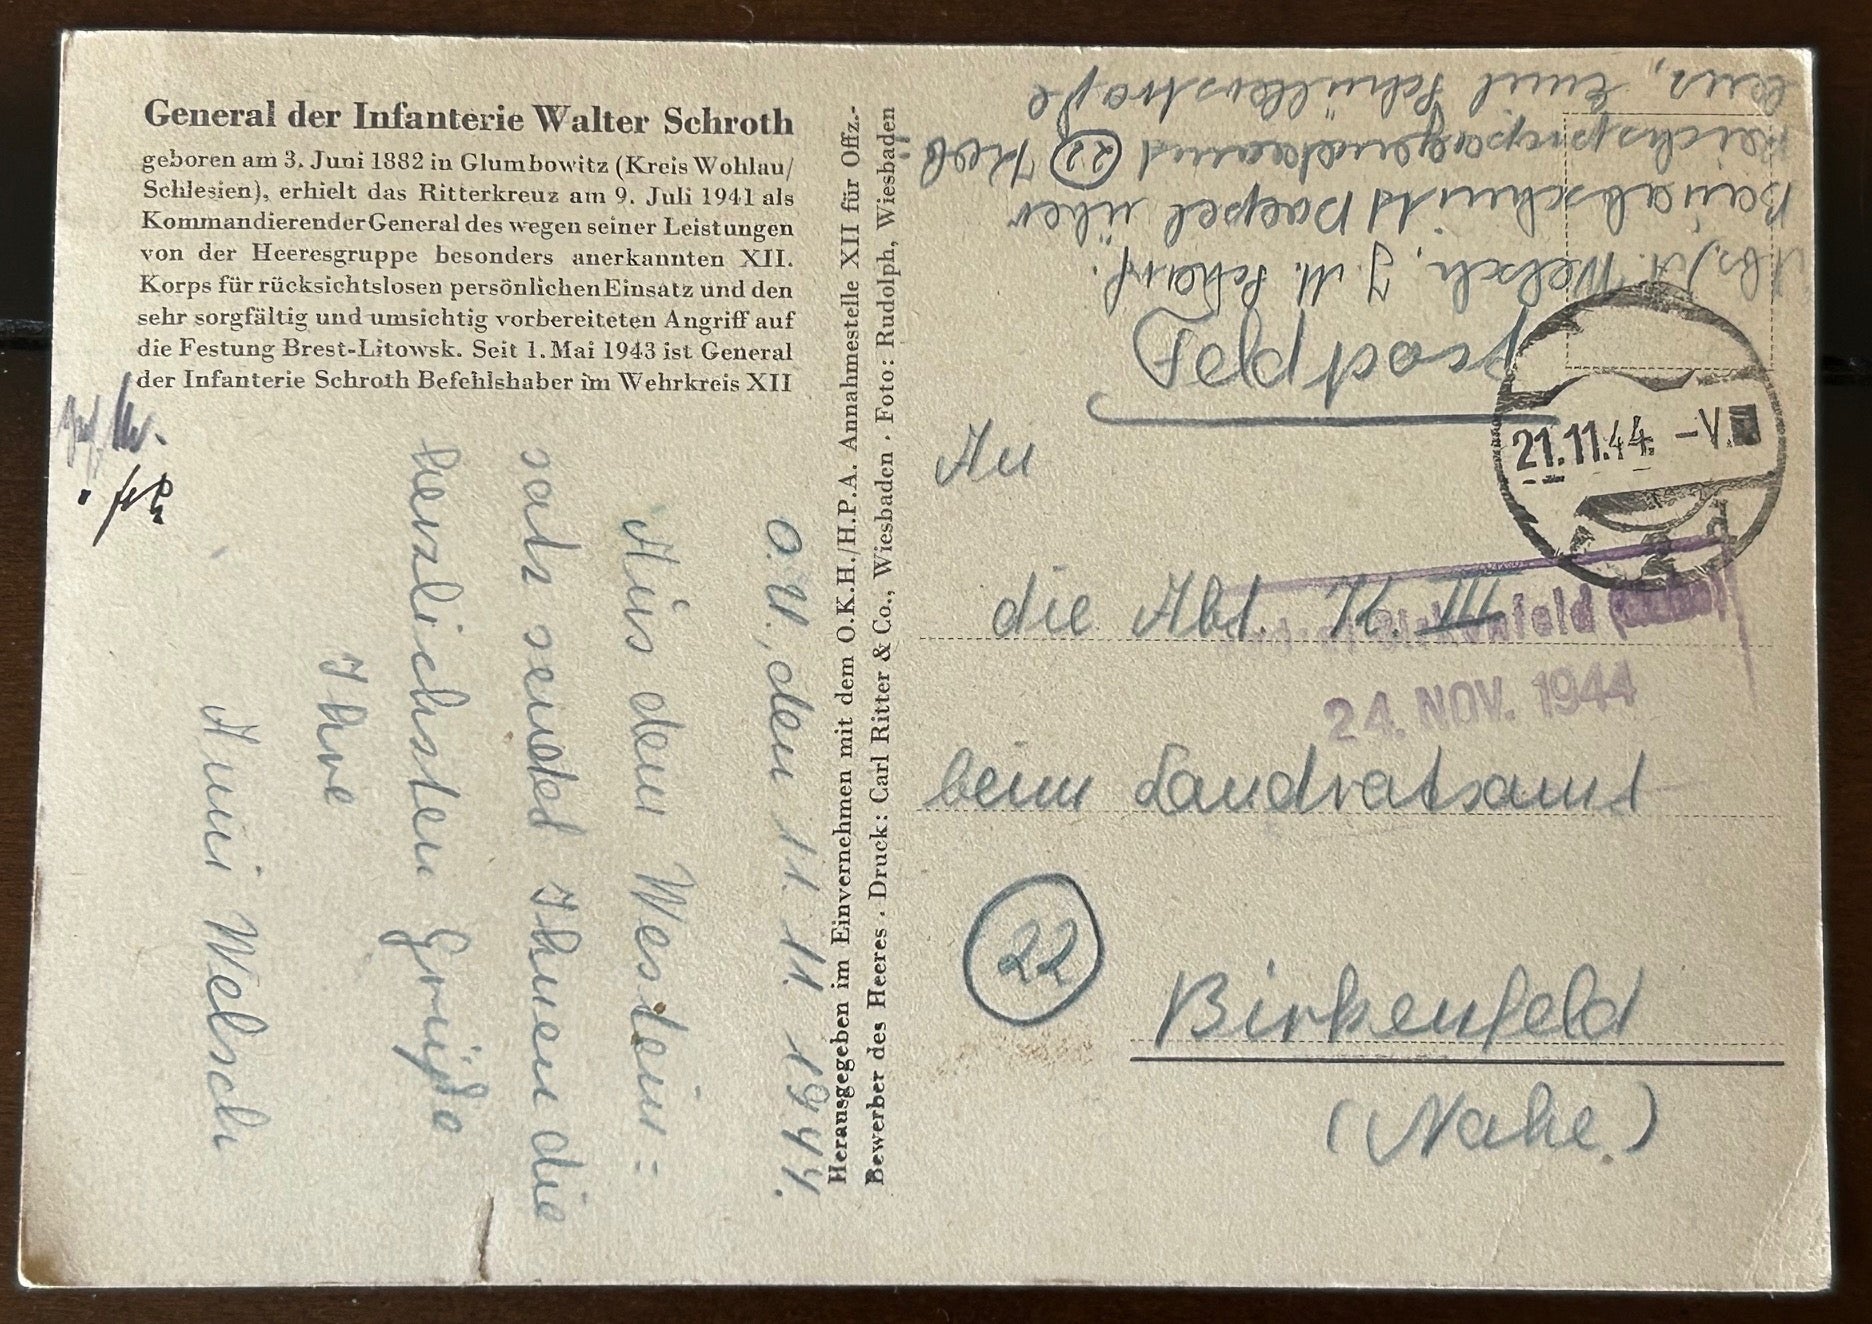 General der Infanterie Walter Schroth
geboren am 3. Juni 1882 in Glumbowitz (Kreis Wohlau/
Schlesien), erhielt das Ritterkreuz am 9. Juli 1941 als
Kommandierender General des wegen seiner Leistungen
von der Heeresgruppe besonders anerkannten XII.
Korps für rücksichtslosen persönlichen Einsatz und den
sehr sorgfältig und umsichtig vorbereiteten Angriff auf
die Festung Brest-Litowsk. Seit 1. Mai 1943 ist General
der Infanterie Schroth Befehlshaber im Wehrkreis XII
O.U., den 11. 11. 1944.
Aus dem Westein=
satz sendet Ihnen die
herzlichsten Grüße
Ihre
Anni Welsch
Herausgegeben im Einvernehmen mit dem O.K.H./H.P.A. Annahmestelle XII für Offz.-
Bewerber des Heeres . Druck: Carl Ritter & Co., Wiesbaden . Foto: Rudolph, Wiesbaden
Abs. A. Welsch, J. M. Scharf.
Bauabschnitt Paepel über
Reichspropagandaamt (22) Kob
lenz, Emil Schüllerstraße
Feldpost
21.11.44.
An
die Abt. K. III
Birkenfeld
24. NOV. 1944
beim Landratsamt
22
Birkenfeld
(Nahe.)